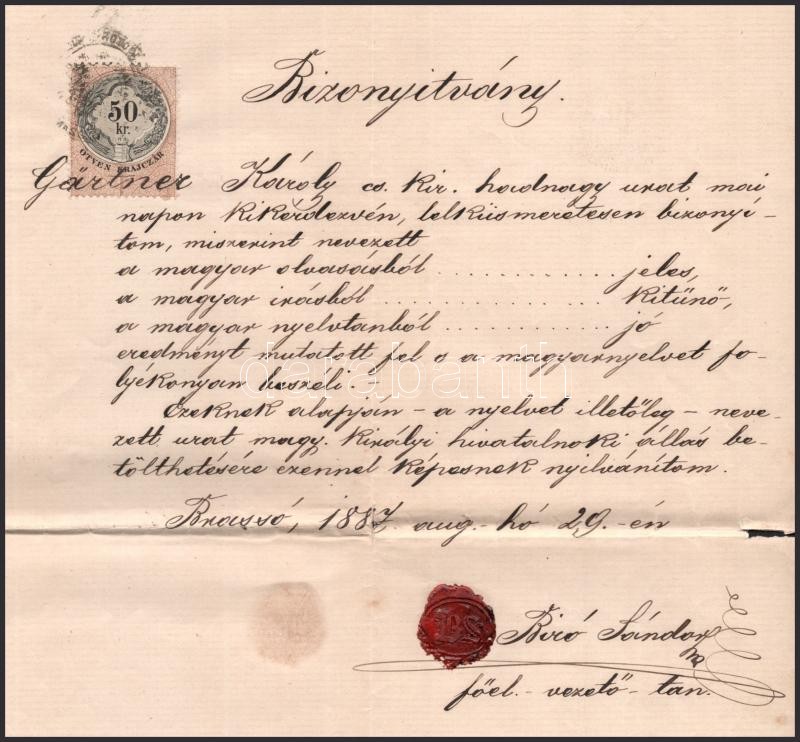 Bizonyitvány.
50
kr.
ÖTVEN KRAJCZÁR
Gärtner Károly cs. kir. hadnagy urat mai
napon kikérdezvén, lelkiismeretesen bizonyi-
tom, miszerint nevezett
a magyar olvasásból .............. jeles,
a magyar irásból .................. kitünő,
a magyar nyelvtanból ............ jó
eredményt mutatott fel s a magyarnyelvet fo-
lyékonyan beszéli. -
Ezeknek alapján - a nyelvet illetőleg - neve-
zett urat magy. királyi hivatalnoki állás be-
tölthetésére ezennel képesnek nyilvánítom.
Brassó, 1887. aug.- hó 29.-én
Biró Sándor
főel. - vezető - tan.
darabanth